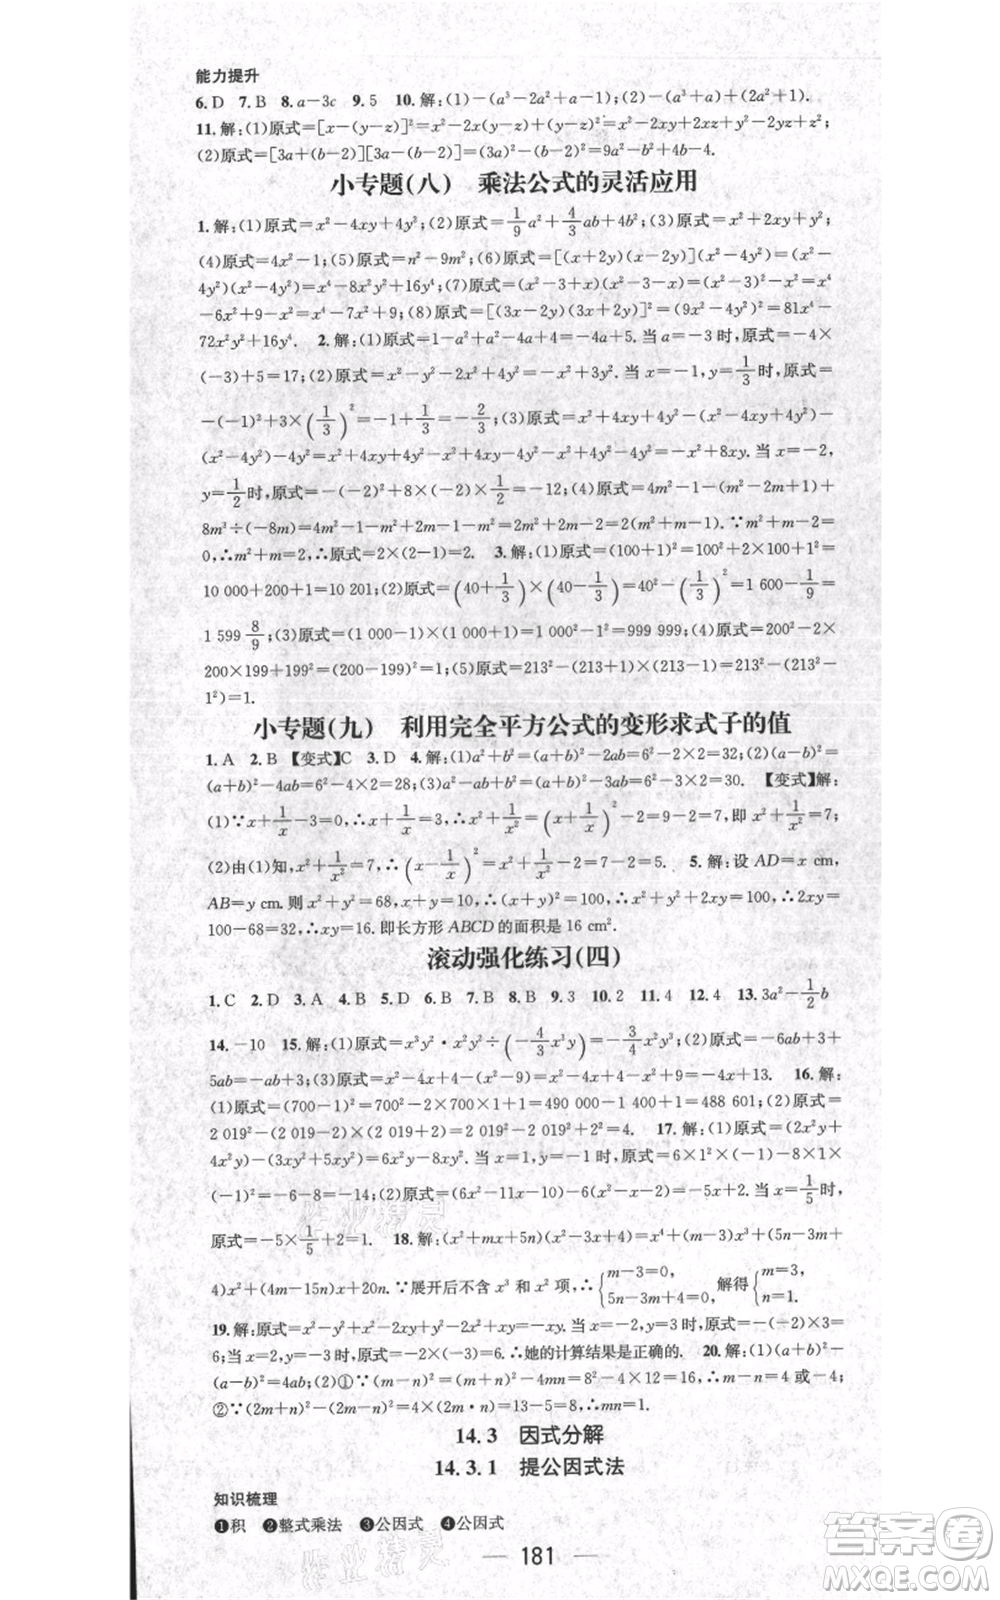 能力提升
6.D 7.B 8.a-3c 9.5 10.解:(1)-(a³-2a²+a-1);(2)-(a³+a)+(2a²+1).
11.解:(1)原式=[x-(y-z)]²=x²-2x(y-z)+(y-z)²=x²-2xy+2xz+y²-2yz+z²;
(2)原式=[3a+(b-2)][3a-(b-2)]=(3a)²-(b-2)²=9a²-b²+4b-4.
小专题(八) 乘法公式的灵活应用
1.解:(1)原式=x²-4xy+4y²;(2)原式=1/9a²+4/3ab+4b²;(3)原式=x²+2xy+y²;
(4)原式=4x²-1;(5)原式=n²-9m²;(6)原式=[(x+2y)(x-2y)](x²-4y²)=(x²-
4y²)(x²-4y²)=x⁴-8x²y²+16y⁴;(7)原式=(x²-3+x)(x²-3-x)=(x²-3)²-x²=x⁴
-6x²+9-x²=x⁴-7x²+9;(8)原式=[(3x-2y)(3x+2y)]²=(9x²-4y²)²=81x⁴-
72x²y²+16y⁴. 2.解:(1)原式=1-a²+a²-4a+4=-4a+5.当a=-3时,原式=-4×
(-3)+5=17;(2)原式=x²-y²-2x²+4y²=-x²+3y².当x=-1,y=1/3时,原式=
-(-1)²+3×(1/3)²=-1+1/3=-2/3;(3)原式=x²+4xy+4y²-(x²-4xy+4y²)-
(x²-4y²)-4y²=x²+4xy+4y²-x²+4xy-4y²-x²+4y²-4y²=-x²+8xy.当x=-2,
y=1/2时,原式=-(-2)²+8×(-2)×1/2=-12;(4)原式=4m²-1-(m²-2m+1)+
8m³÷(-8m)=4m²-1-m²+2m-1-m²=2m²+2m-2=2(m²+m-1).∵m²+m-2=
0,∴m²+m=2,∴原式=2×(2-1)=2. 3.解:(1)原式=(100+1)²=100²+2×100+1=
10 000+200+1=10 201;(2)原式=(40+1/3)×(40-1/3)=40²-(1/3)²=1 600-1/9=
1 599 8/9;(3)原式=(1 000-1)×(1 000+1)=1 000²-1²=999 999;(4)原式=200²-2×
200×199+199²=(200-199)²=1;(5)原式=213²-(213+1)×(213-1)=213²-(213²-
1²)=1.
小专题(九) 利用完全平方公式的变形求式子的值
1.A 2.B 【变式】C 3.D 4.解:(1)a²+b²=(a+b)²-2ab=6²-2×2=32;(2)(a-b)²=
(a+b)²-4ab=6²-4×2=28;(3)a²-ab+b²=(a+b)²-3ab=6²-3×2=30. 【变式】解:
(1)∵x+1/x-3=0,∴x+1/x=3,∴x²+1/x²=(x+1/x)²-2=9-2=7,即x²+1/x²=7;
(2)由(1)知,x²+1/x²=7,∴(x-1/x)²=x²+1/x²-2=7-2=5. 5.解:设AD=x cm,
AB=y cm.则x²+y²=68,x+y=10,∴(x+y)²=100,∴x²+2xy+y²=100,∴2xy=
100-68=32,∴xy=16.即长方形ABCD的面积是16 cm².
滚动强化练习(四)
1.C 2.D 3.A 4.B 5.D 6.B 7.B 8.B 9.3 10.2 11.4 12.4 13.3a²-1/2b
14.-10 15.解:(1)原式=x³y²·x²y²÷(-4/3x³y)=-3/4x²y³;(2)原式=-6ab+3+
5ab=-ab+3;(3)原式=x²+4x+4-(x²-9)=x²+4x+4-x²+9=4x+13. 16.解:
(1)原式=(700-1)²=700²-2×700×1+1²=490 000-1 400+1=488 601;(2)原式=
2 019²-(2 019-2)×(2 019+2)=2 019²-2 019²+2²=4. 17.解:(1)原式=(2x²y+
4x²y)-(3xy²+5xy²)=6x²y-8xy².当x=1,y=-1时,原式=6×1²×(-1)-8×1×
(-1)²=-6-8=-14;(2)原式=(6x²-2x-9x+3)-(6x²-24x+5x-20)=6x²-11x+3-6x²+19x+20
原式=-5×1/5+2=1. 18.解:(x²+mx+n)(x²-3x+4)=x⁴+(m-3)x³+(n-3m+
4)x²+(4m-3n)x+4n.∵展开后不含x³和x²项,∴{m-3=0, n-3m+4=0, 解得{m=3, n=5.
19.解:原式=x²-2x²-
6;当x=-1时,原式=-2×(-3)=6.∴她的计算结果是正确的. 20.解:(1)(a+b)²-
(a-b)²=4ab;(2)①
14.3 因式分解
14.3.1 提公因式法
知识梳理
❶积 ❷整式乘法 ❸公因式 ❹公因式
181
答案圈
MXQE.COM
作业精灵
作业精灵